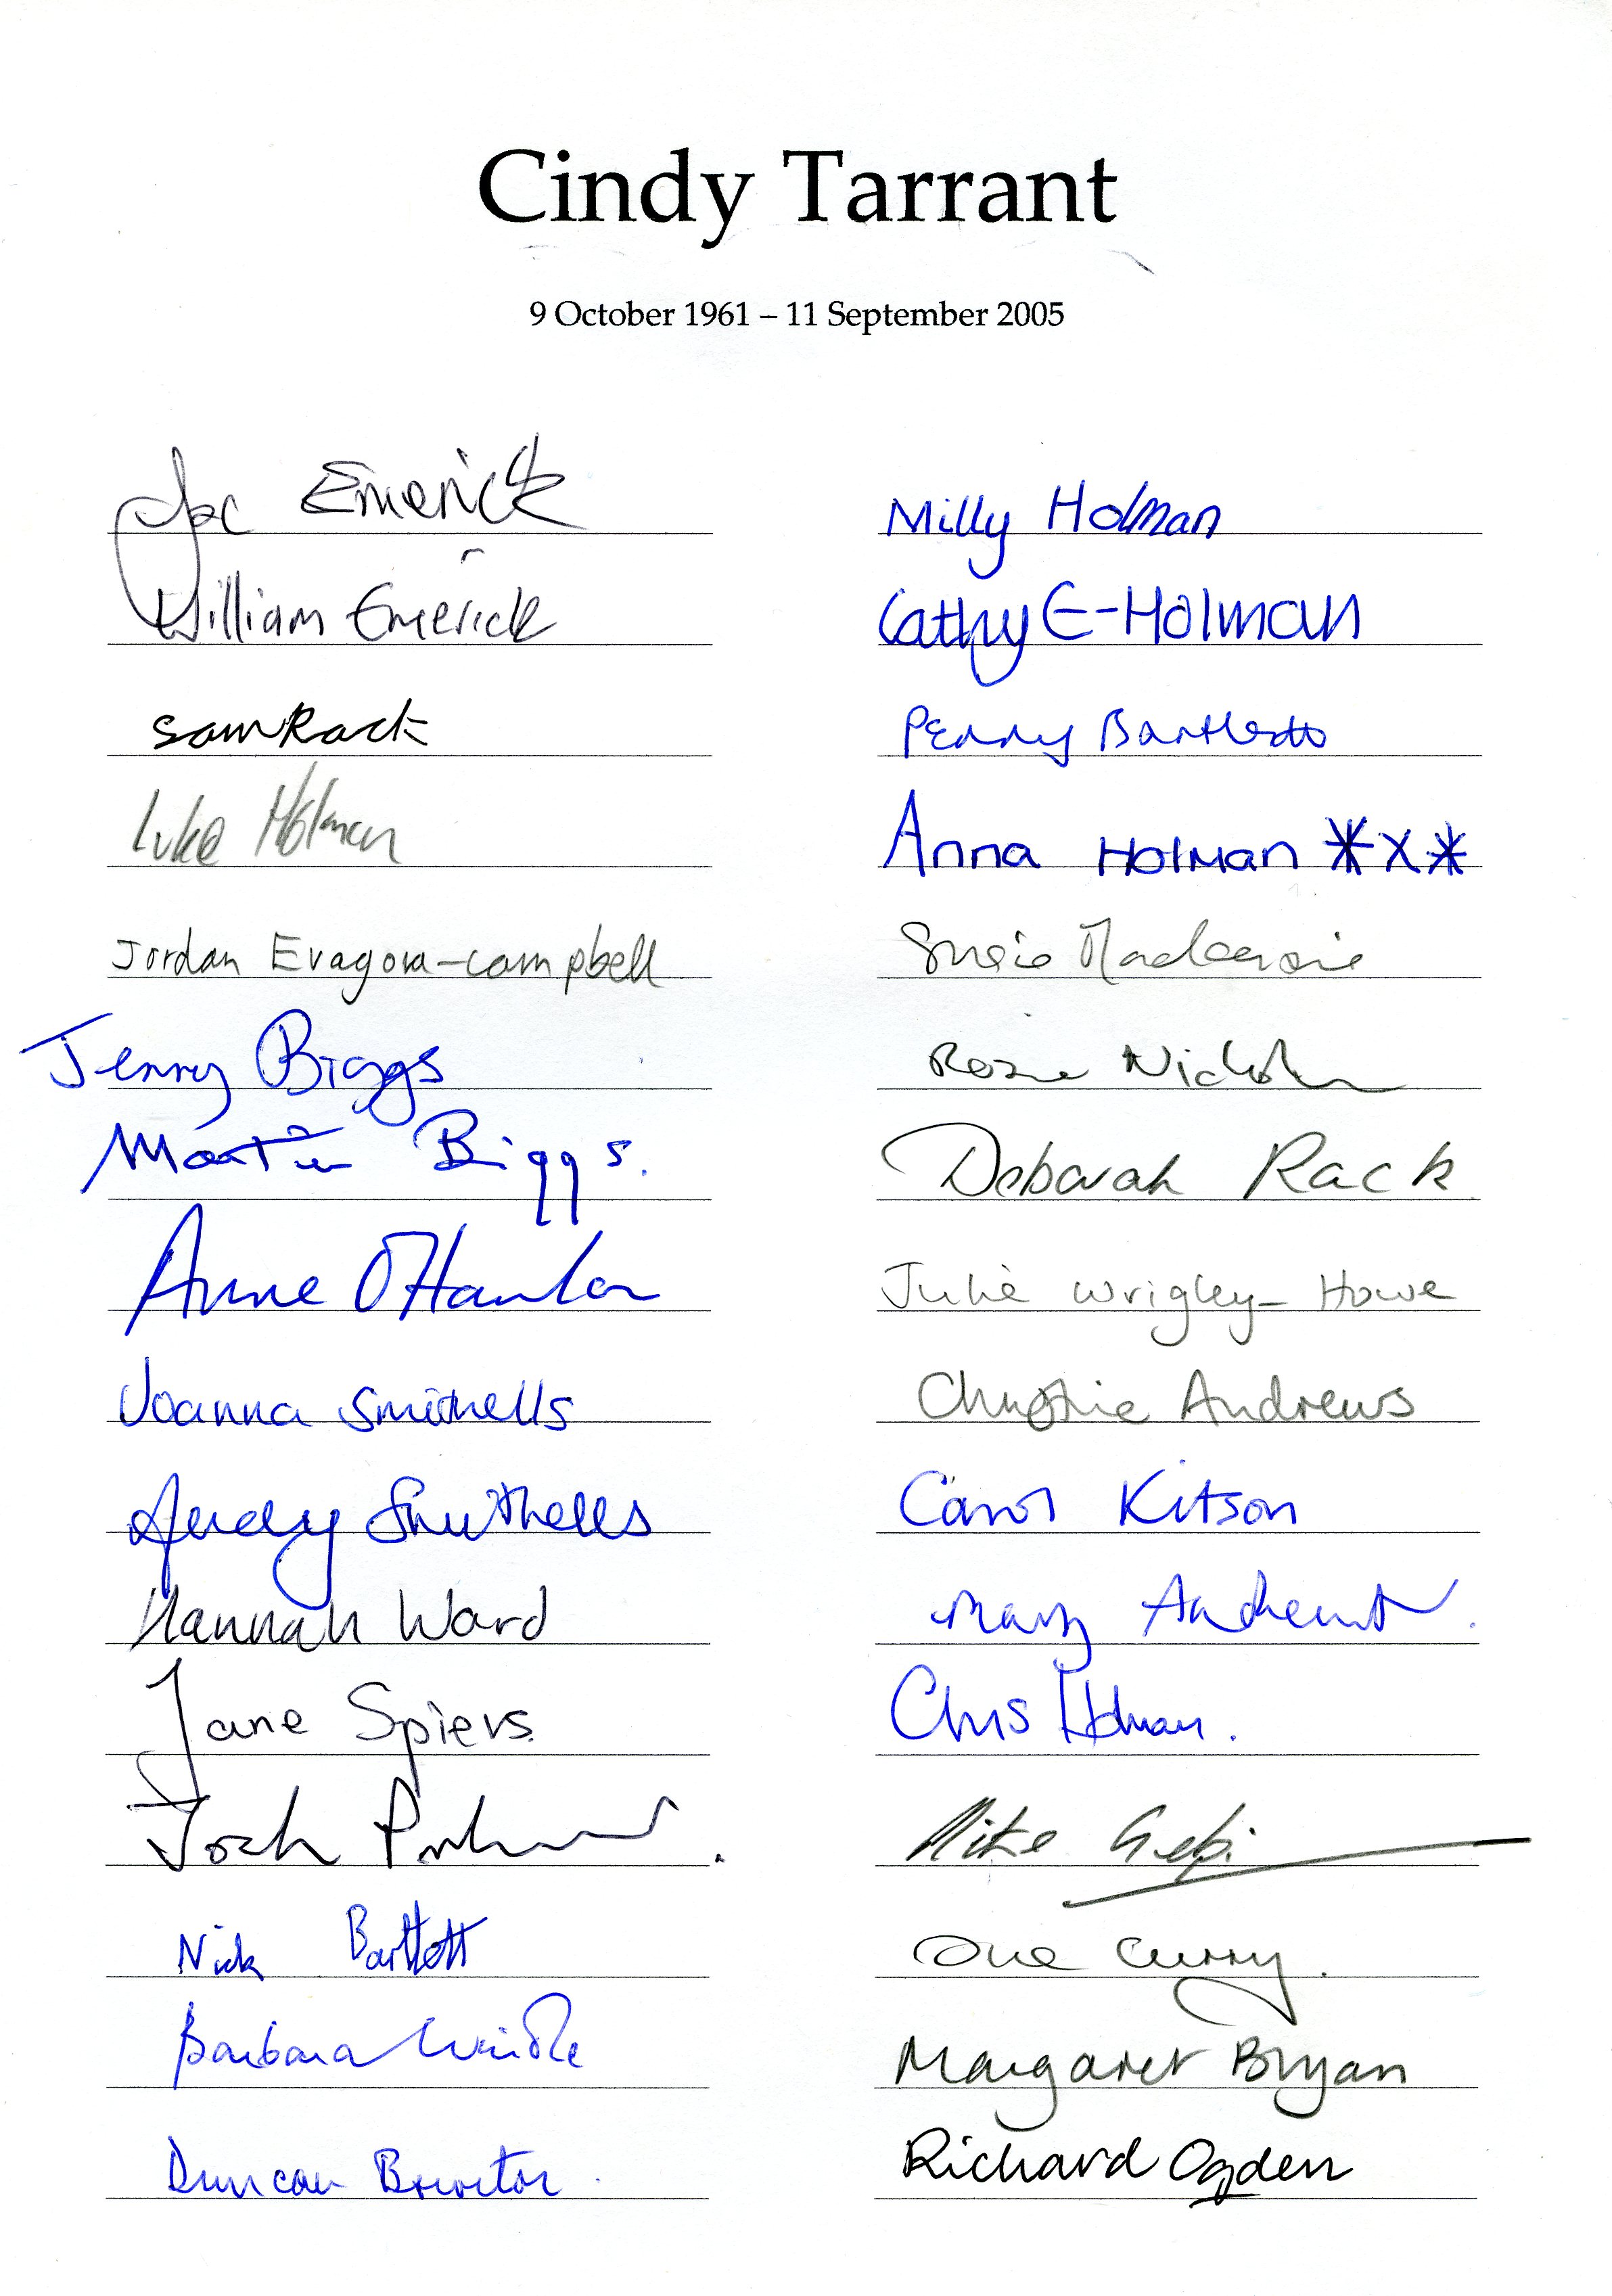 Cindy Tarrant
9 October 1961 – 11 September 2005
Joe Emerick
William Emerick
Sam Rack
Luke Holman
Jordan Evagora-campbell
Jenny Biggs
Martin Biggs.
Anne O'Hanlon
Joanna Smithells
Judy Smithells
Hannah Ward
Jane Spiers.
Josh
Nick Bartlett
Barbara Windle
Duncan
Milly Holman
Cathy E-Holman
Penny Bartlett
Anna Holman
Susie Mackenzie
Rosie
Deborah Rack
Julie Wrigley-Howe
Christie Andrews
Carol Kitson
Mary Andrews.
Chris Holman.
Mike
Sue Curry.
Margaret Bryan
Richard Ogden